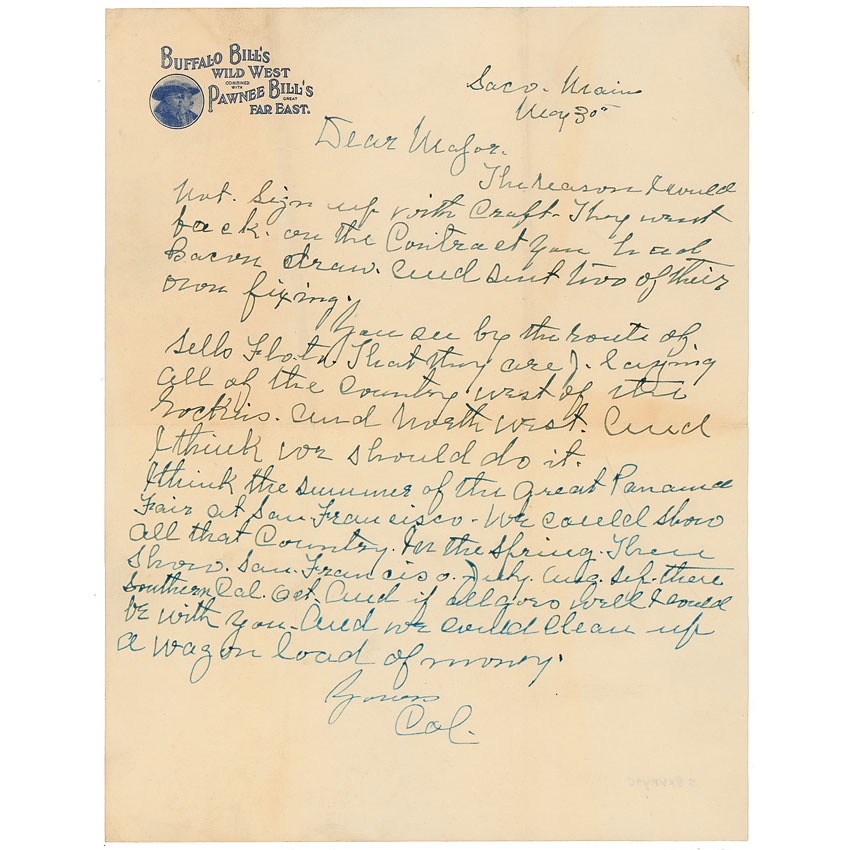 BUFFALO BILL'S
WILD WEST
COMBINED
WITH
PAWNEE BILL'S
GREAT
FAR EAST.
Saco. Main
May 30th
Dear Major.
The reason I would
not. Sign up with Craft. They went
back. on the Contract you had
Bacon draw. and sent two of their
own fixing.
You see by the route of
Sells Floto. That they are playing
all of the Country west of the
Rockies. and North west. and
I think we should do it.
I think the summer of the great Panama
Fair at San. Francisco. We could show
all that Country. In the Spring. Then
Show. San. Francisco. July. Aug. Sep. then
Southern Cal. Oct. And if all goes well I would
be with you. And we could clean up
a wagon load of money.
Yours
Col.